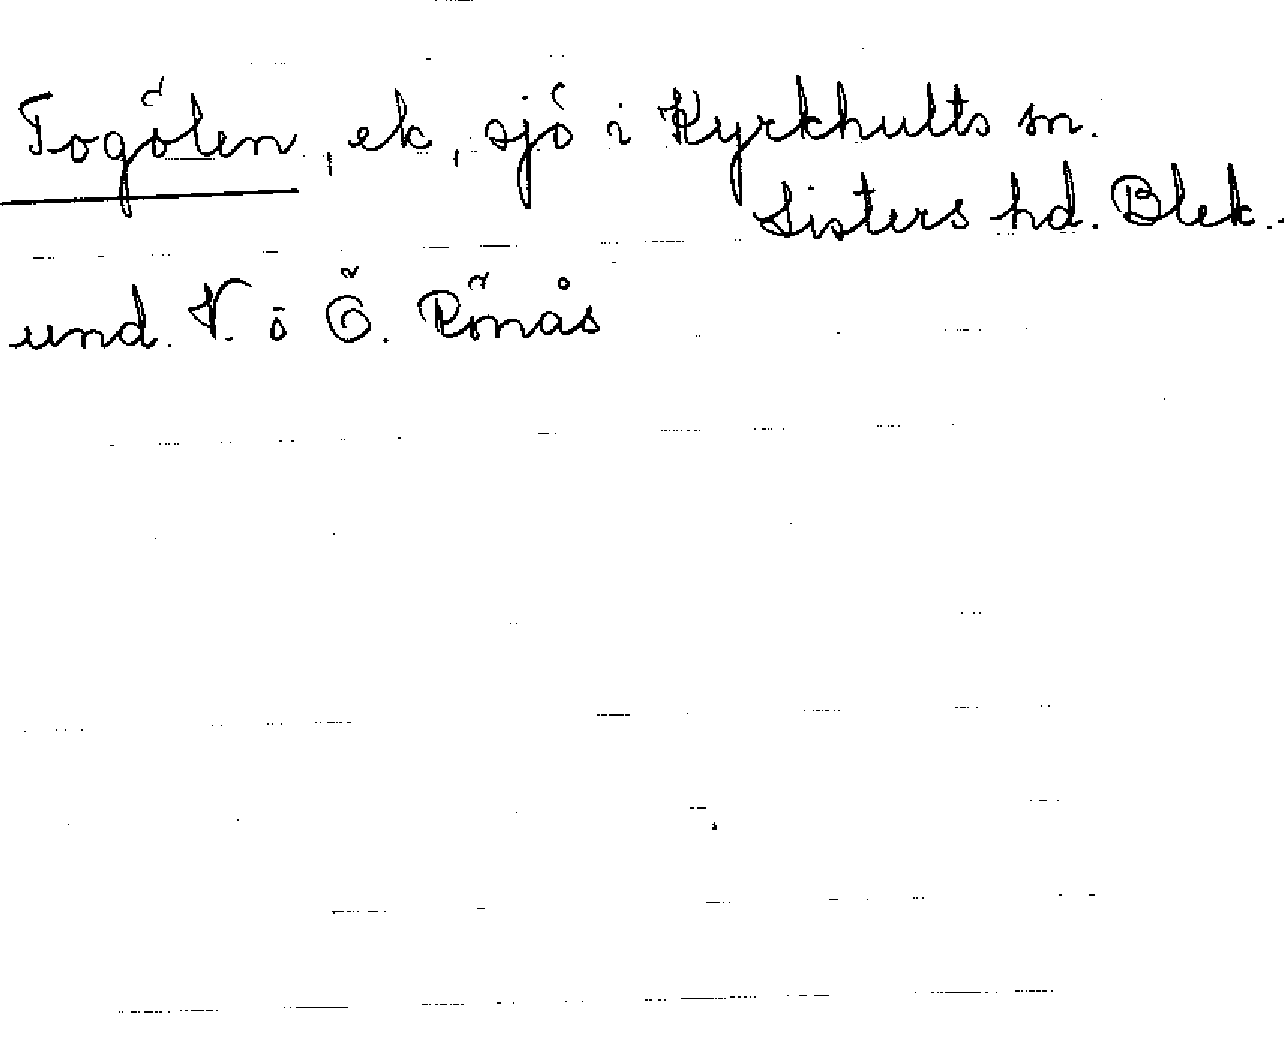 Togölen, ek, sjö i Kyrkhults sn.
Listers hd. Blek.
und. V. o Ö. Rönås